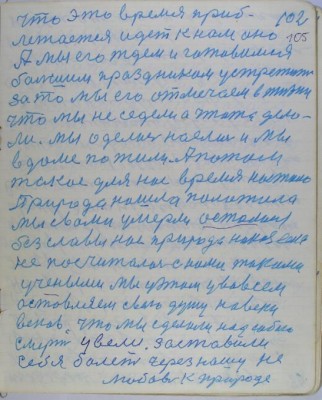 что это время приб- 102
лежается идет к нам оно 105
А мы его ждем и готовимся
большим праздником устретить
за то мы его отмечаем в жизни
что мы не седели а что то дела-
ли. мы оделись наелись и мы
в доме по жили. А потом
такое для нас время настало
Природа нашла положила
мы с вами умерли остались
без славы нас природа наказала
не посчиталась с нами такими
учеными мы у этом у во всем
оставляем свою душу на веки
веков. что мы сделали над собою
смерть увели. заставили
себя болеть через нашу не
любовь к природе